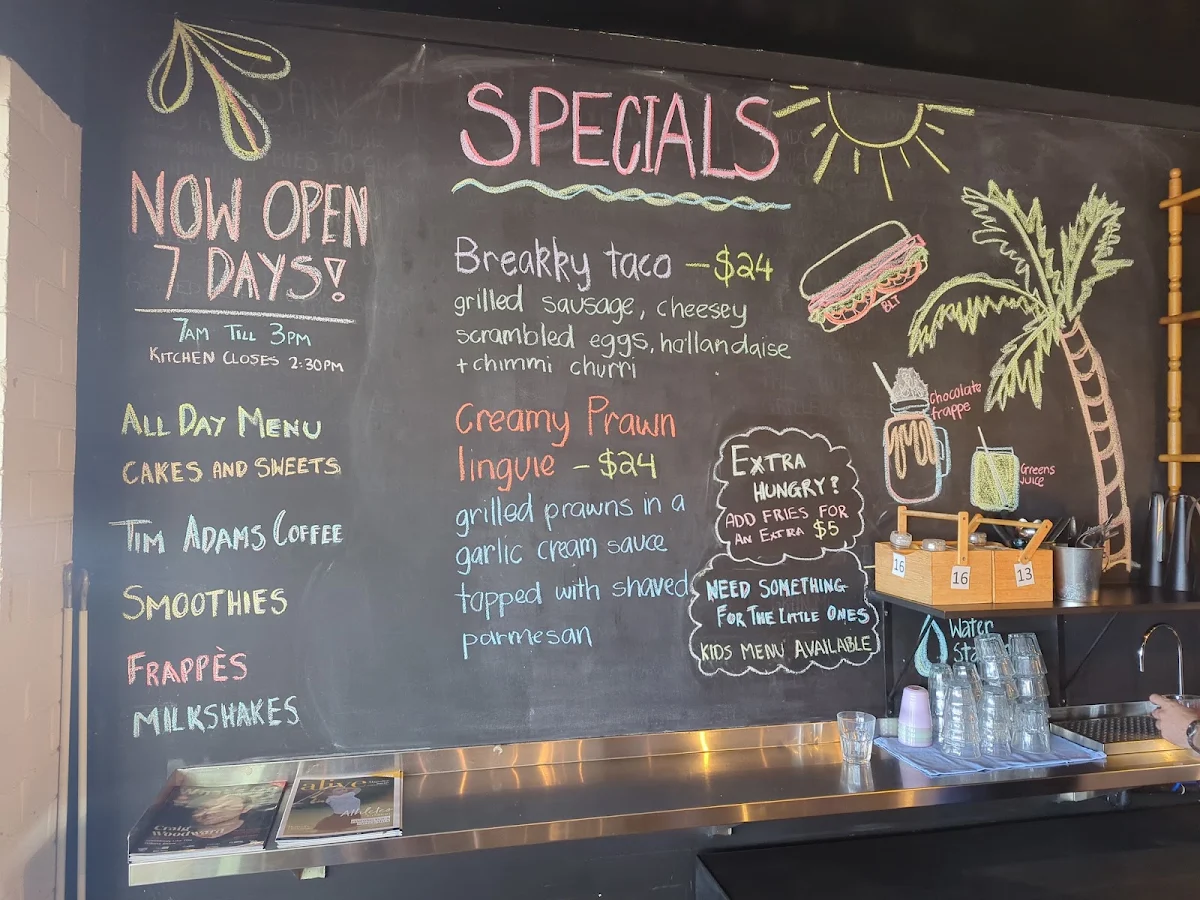 NOW OPEN
7 DAYS!
7AM TILL 3PM
KITCHEN CLOSES 2:30PM
ALL DAY MENU
CAKES AND SWEETS
TIM ADAMS COFFEE
SMOOTHIES
FRAPPÈS
MILKSHAKES
SPECIALS
Breakky taco - $24
grilled sausage, cheesey
scrambled eggs, hollandaise
+ chimmi churri
Creamy Prawn
linguie - $24
grilled prawns in a
garlic cream sauce
topped with shaved
parmesan
EXTRA
HUNGRY?
ADD FRIES FOR
AN EXTRA $5
NEED SOMETHING
FOR THE LITTLE ONES
KIDS MENU AVAILABLE
BLT
Chocolate
frappe
Greens
Juice
16
16
13
Water
Craig
Woodward
alive